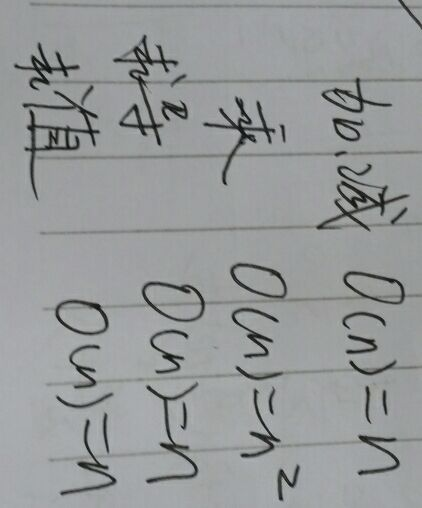 加、减 O(n)=n
乘 O(n)=n²
求导 O(n)=n
求值 O(n)=n